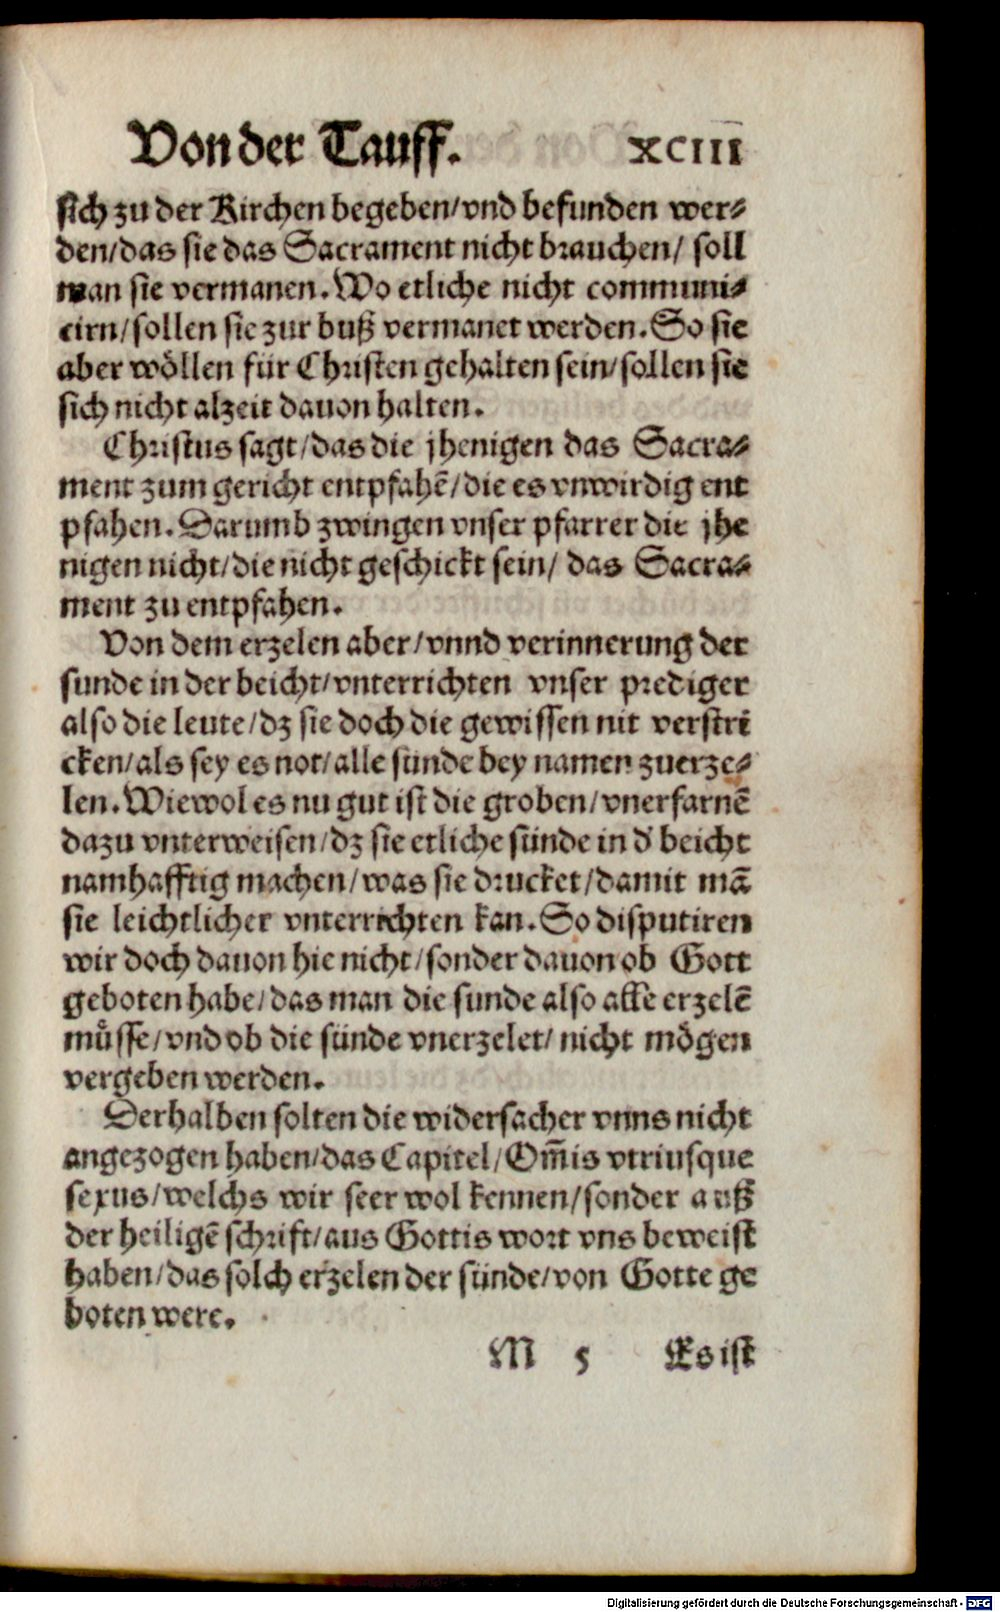 Von der Tauff. XCIII
sich zu der Kirchen begeben/vnd befunden wer⸗
den/das sie das Sacrament nicht brauchen/ soll
man sie vermanen. Wo etliche nicht communi⸗
cirn/sollen sie zur buß vermanet werden. So sie
aber wöllen für Christen gehalten sein/sollen sie
sich nicht alzeit dauon halten.
Christus sagt/das die jhenigen das Sacra⸗
ment zum gericht entpfahē/die es vnwirdig ent
pfahen. Darumb zwingen vnser pfarrer die jhe
nigen nicht/die nicht geschickt sein/ das Sacra⸗
ment zu entpfahen.
Von dem erzelen aber/vnnd verinnerung der
sunde in der beicht/vnterrichten vnser prediger
also die leute/dz sie doch die gewissen nit verstri
cken/als sey es not/alle sünde bey namen zuerze⸗
len. Wiewol es nu gut ist die groben/vnerfarnē
dazu vnterweisen/dz sie etliche sünde in d' beicht
namhafftig machen/was sie drucket/damit mā
sie leichtlicher vnterrichten kan. So disputiren
wir doch dauon hie nicht/sonder dauon ob Gott
geboten habe/das man die sunde also alle erzelē
müsse/vnd ob die sünde vnerzelet/ nicht mögen
vergeben werden.
Derhalben solten die widersacher vnns nicht
angezogen haben/das Capitel/Om̄is vtriusque
sexus/welchs wir seer wol kennen/sonder auß
der heiligē schrift/aus Gottis wort vns beweist
haben/das solch erzelen der sünde/von Gotte ge
boten were.
M 5 Es ist
Digitalisierung gefördert durch die Deutsche Forschungsgemeinschaft - DFG